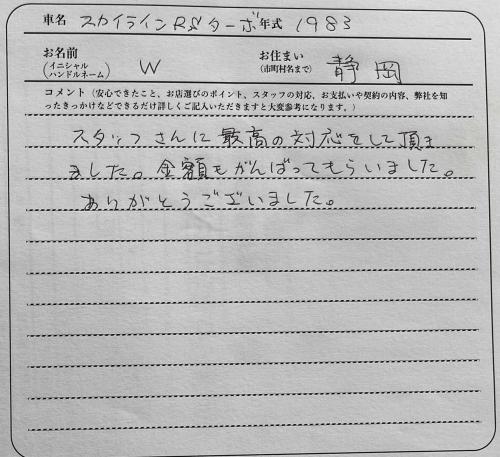 車名 スカイラインRSターボ 年式 1983
お名前 (イニシャル ハンドルネーム) W お住まい (市町村名まで) 静岡
コメント(安心できたこと、お店選びのポイント、スタッフの対応、お支払いや契約の内容、弊社を知
ったきっかけなどできるだけ詳しくご記入いただきますと大変参考になります。)
スタッフさんに最高の対応をして頂き
ました。金額もがんばってもらいました。
ありがとうございました。